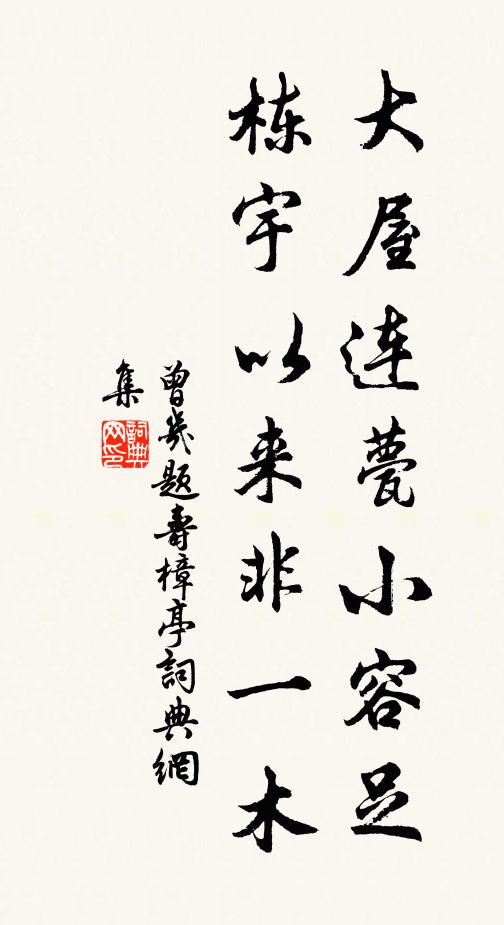 大屋连甍小容足
栋宇以来非一木
曾几题寿樟亭詞典網
集
詞典网印